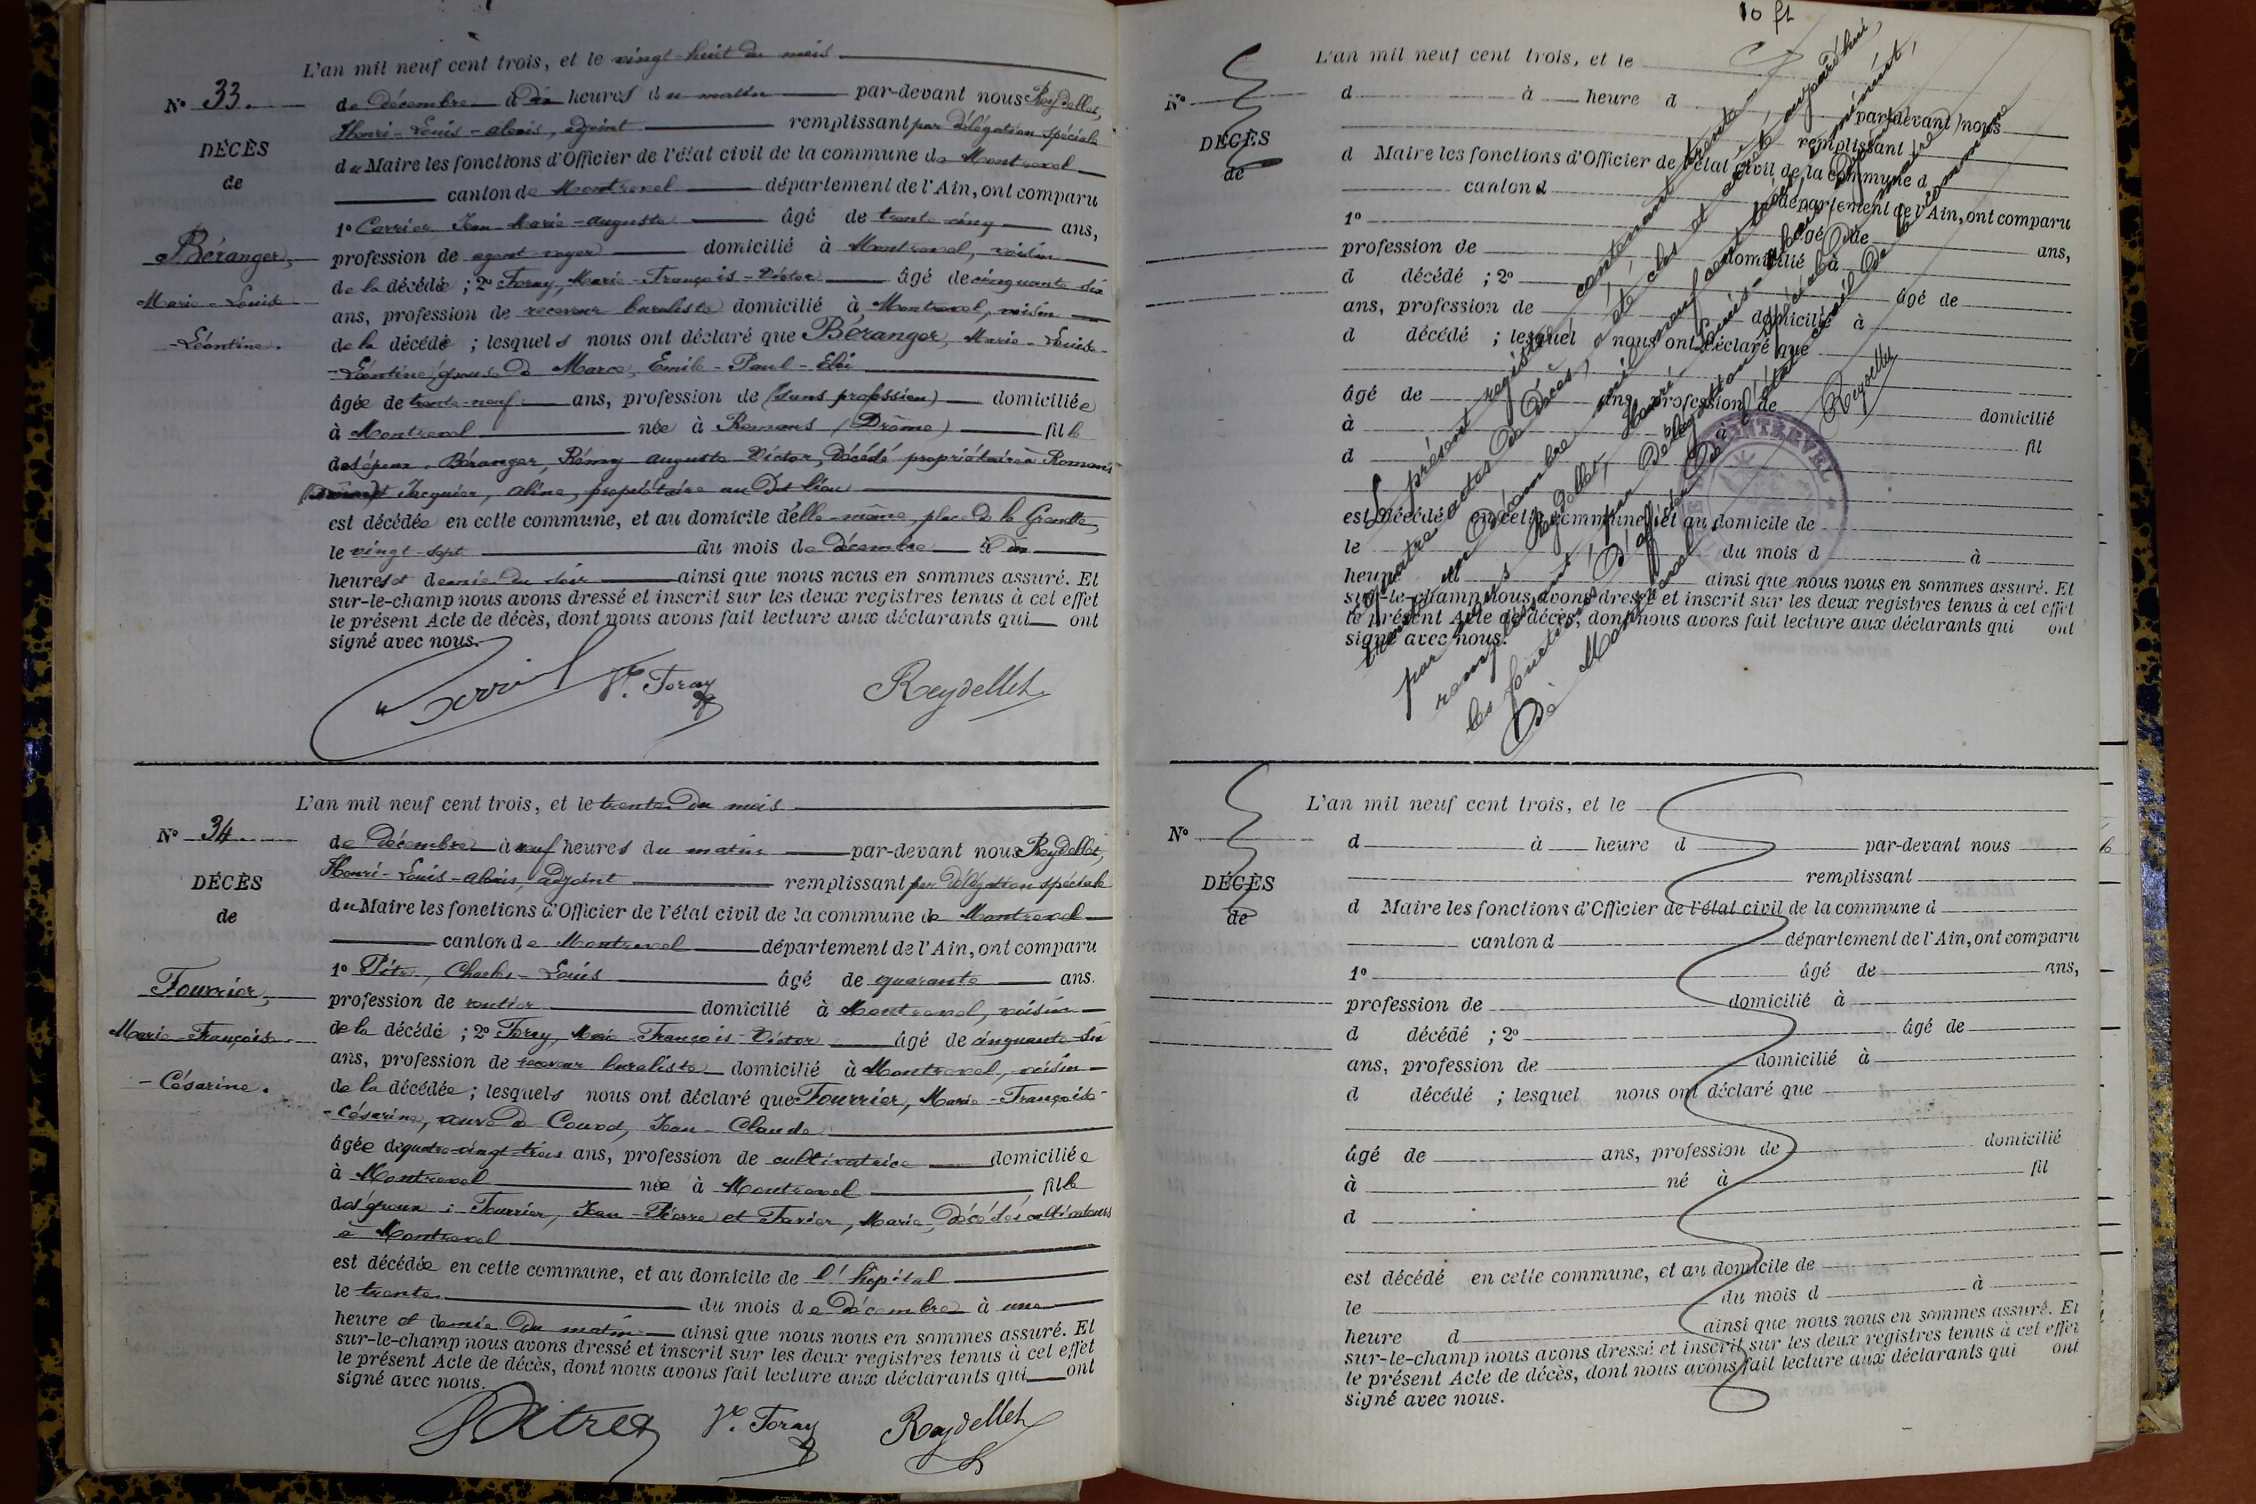 L'an mil neuf cent trois, et le vingt-huit du mois
N° 33.
de décembre à dix heures du matin par-devant nous Reydellet,
DÉCÈS
Henri-Louis-alexis, adjoint remplissant par délégation spéciale
de
du Maire les fonctions d'Officier de l'état civil de la commune de Montrevel
canton de Montrevel département de l'Ain, ont comparu
1° Carrier Jean-Marie-auguste âgé de trente cinq ans,
Béranger,
profession de agent voyer domicilié à Montrevel, voisin
Marie-Louise
de la décédée ; 2° Foray, Marie-François-Victor âgé de cinquante six
ans, profession de receveur buraliste domicilié à Montrevel, voisin
-Léontine.
de la décédé ; lesquels nous ont déclaré que Béranger, Marie-Louise-
-Léontine, épouse de Marce, Emile-Paul-Eloi
âgée de trente-neuf ans, profession de (sans profession) domiciliée
à Montrevel née à Romans (Drôme) fille
des époux Béranger, Rémy auguste Victor, décédé propriétaire à Romans
(Drôme) et Jacquier, aline, propriétaire au dit lieu
est décédée en cette commune, et au domicile d'elle-même, place de la Grenette,
le vingt-sept du mois de décembre à dix
heures et demie du soir ainsi que nous nous en sommes assuré. Et
sur-le-champ nous avons dressé et inscrit sur les deux registres tenus à cet effet
le présent Acte de décès, dont nous avons fait lecture aux déclarants qui ont
signé avec nous.
Vr. Foray Reydellet
L'an mil neuf cent trois, et le trente du mois
N° 34.
de décembre à neuf heures du matin par-devant nous Reydellet,
DÉCÈS
Henri-Louis-alexis, adjoint remplissant par délégation spéciale
de
du Maire les fonctions d'Officier de l'état civil de la commune de Montrevel
canton de Montrevel département de l'Ain, ont comparu
1° Charles-Louis âgé de quarante ans.
Fourrier,
profession de rentier domicilié à Montrevel, voisin
Marie-Françoise
de la décédé ; 2° Foray, Marie-François-Victor âgé de cinquante-six
ans, profession de receveur buraliste domicilié à Montrevel, voisin
-Césarine.
de la décédée ; lesquels nous ont déclaré que Fourrier, Marie-Françoise-
-Césarine, veuve de Couvod, Jean-Claude
âgée de quatre-vingt-trois ans, profession de cultivatrice domiciliée
à Montrevel née à Montrevel fille
des époux : Fourrier, Jean-Pierre et Favier, Marie, décédés cultivateurs
à Montrevel
est décédée en cette commune, et au domicile de l'hôpital
le trente du mois de Décembre à une
heure et demie du matin ainsi que nous nous en sommes assuré. Et
sur-le-champ nous avons dressé et inscrit sur les deux registres tenus à cet effet
le présent Acte de décès, dont nous avons fait lecture aux déclarants qui ont
signé avec nous.
Vr. Foray Reydellet
10 ft
L'an mil neuf cent trois, et le
N°
d à heure d par-devant nous
DÉCÈS
remplissant
de
d Maire les fonctions d'Officier de l'état civil de la commune d
canton d département de l'Ain, ont comparu
1° âgé de ans,
profession de domicilié à
d décédé ; 2° âgé de
ans, profession de domicilié à
d décédé ; lesquel nous ont déclaré que
âgé de ans, profession de domicilié
à né à fil
d
est décédé en cette commune, et au domicile de
le du mois d à
heure d ainsi que nous nous en sommes assuré. Et
sur-le-champ nous avons dressé et inscrit sur les deux registres tenus à cet effet
le présent Acte de décès, dont nous avons fait lecture aux déclarants qui ont
signé avec nous.
Le présent registre, contenant trente-
quatre actes de décès, a été clos et arrêté aujourd'hui,
trente un décembre mil neuf cent trois, à minuit,
par nous Reydellet, Henri-Louis-alexis adjoint
remplissant, par délégation spéciale du maire
les fonctions d'officier de l'état civil de la commune
de Montrevel
Reydellet
MONTREVEL
L'an mil neuf cent trois, et le
N°
d à heure d par-devant nous
DÉCÈS
remplissant
de
d Maire les fonctions d'Officier de l'état civil de la commune d
canton d département de l'Ain, ont comparu
1° âgé de ans,
profession de domicilié à
d décédé ; 2° âgé de
ans, profession de domicilié à
d décédé ; lesquel nous ont déclaré que
âgé de ans, profession de domicilié
à né à fil
d
est décédé en cette commune, et au domicile de
le du mois d à
heure d ainsi que nous nous en sommes assuré. Et
sur-le-champ nous avons dressé et inscrit sur les deux registres tenus à cet effet
le présent Acte de décès, dont nous avons fait lecture aux déclarants qui ont
signé avec nous.